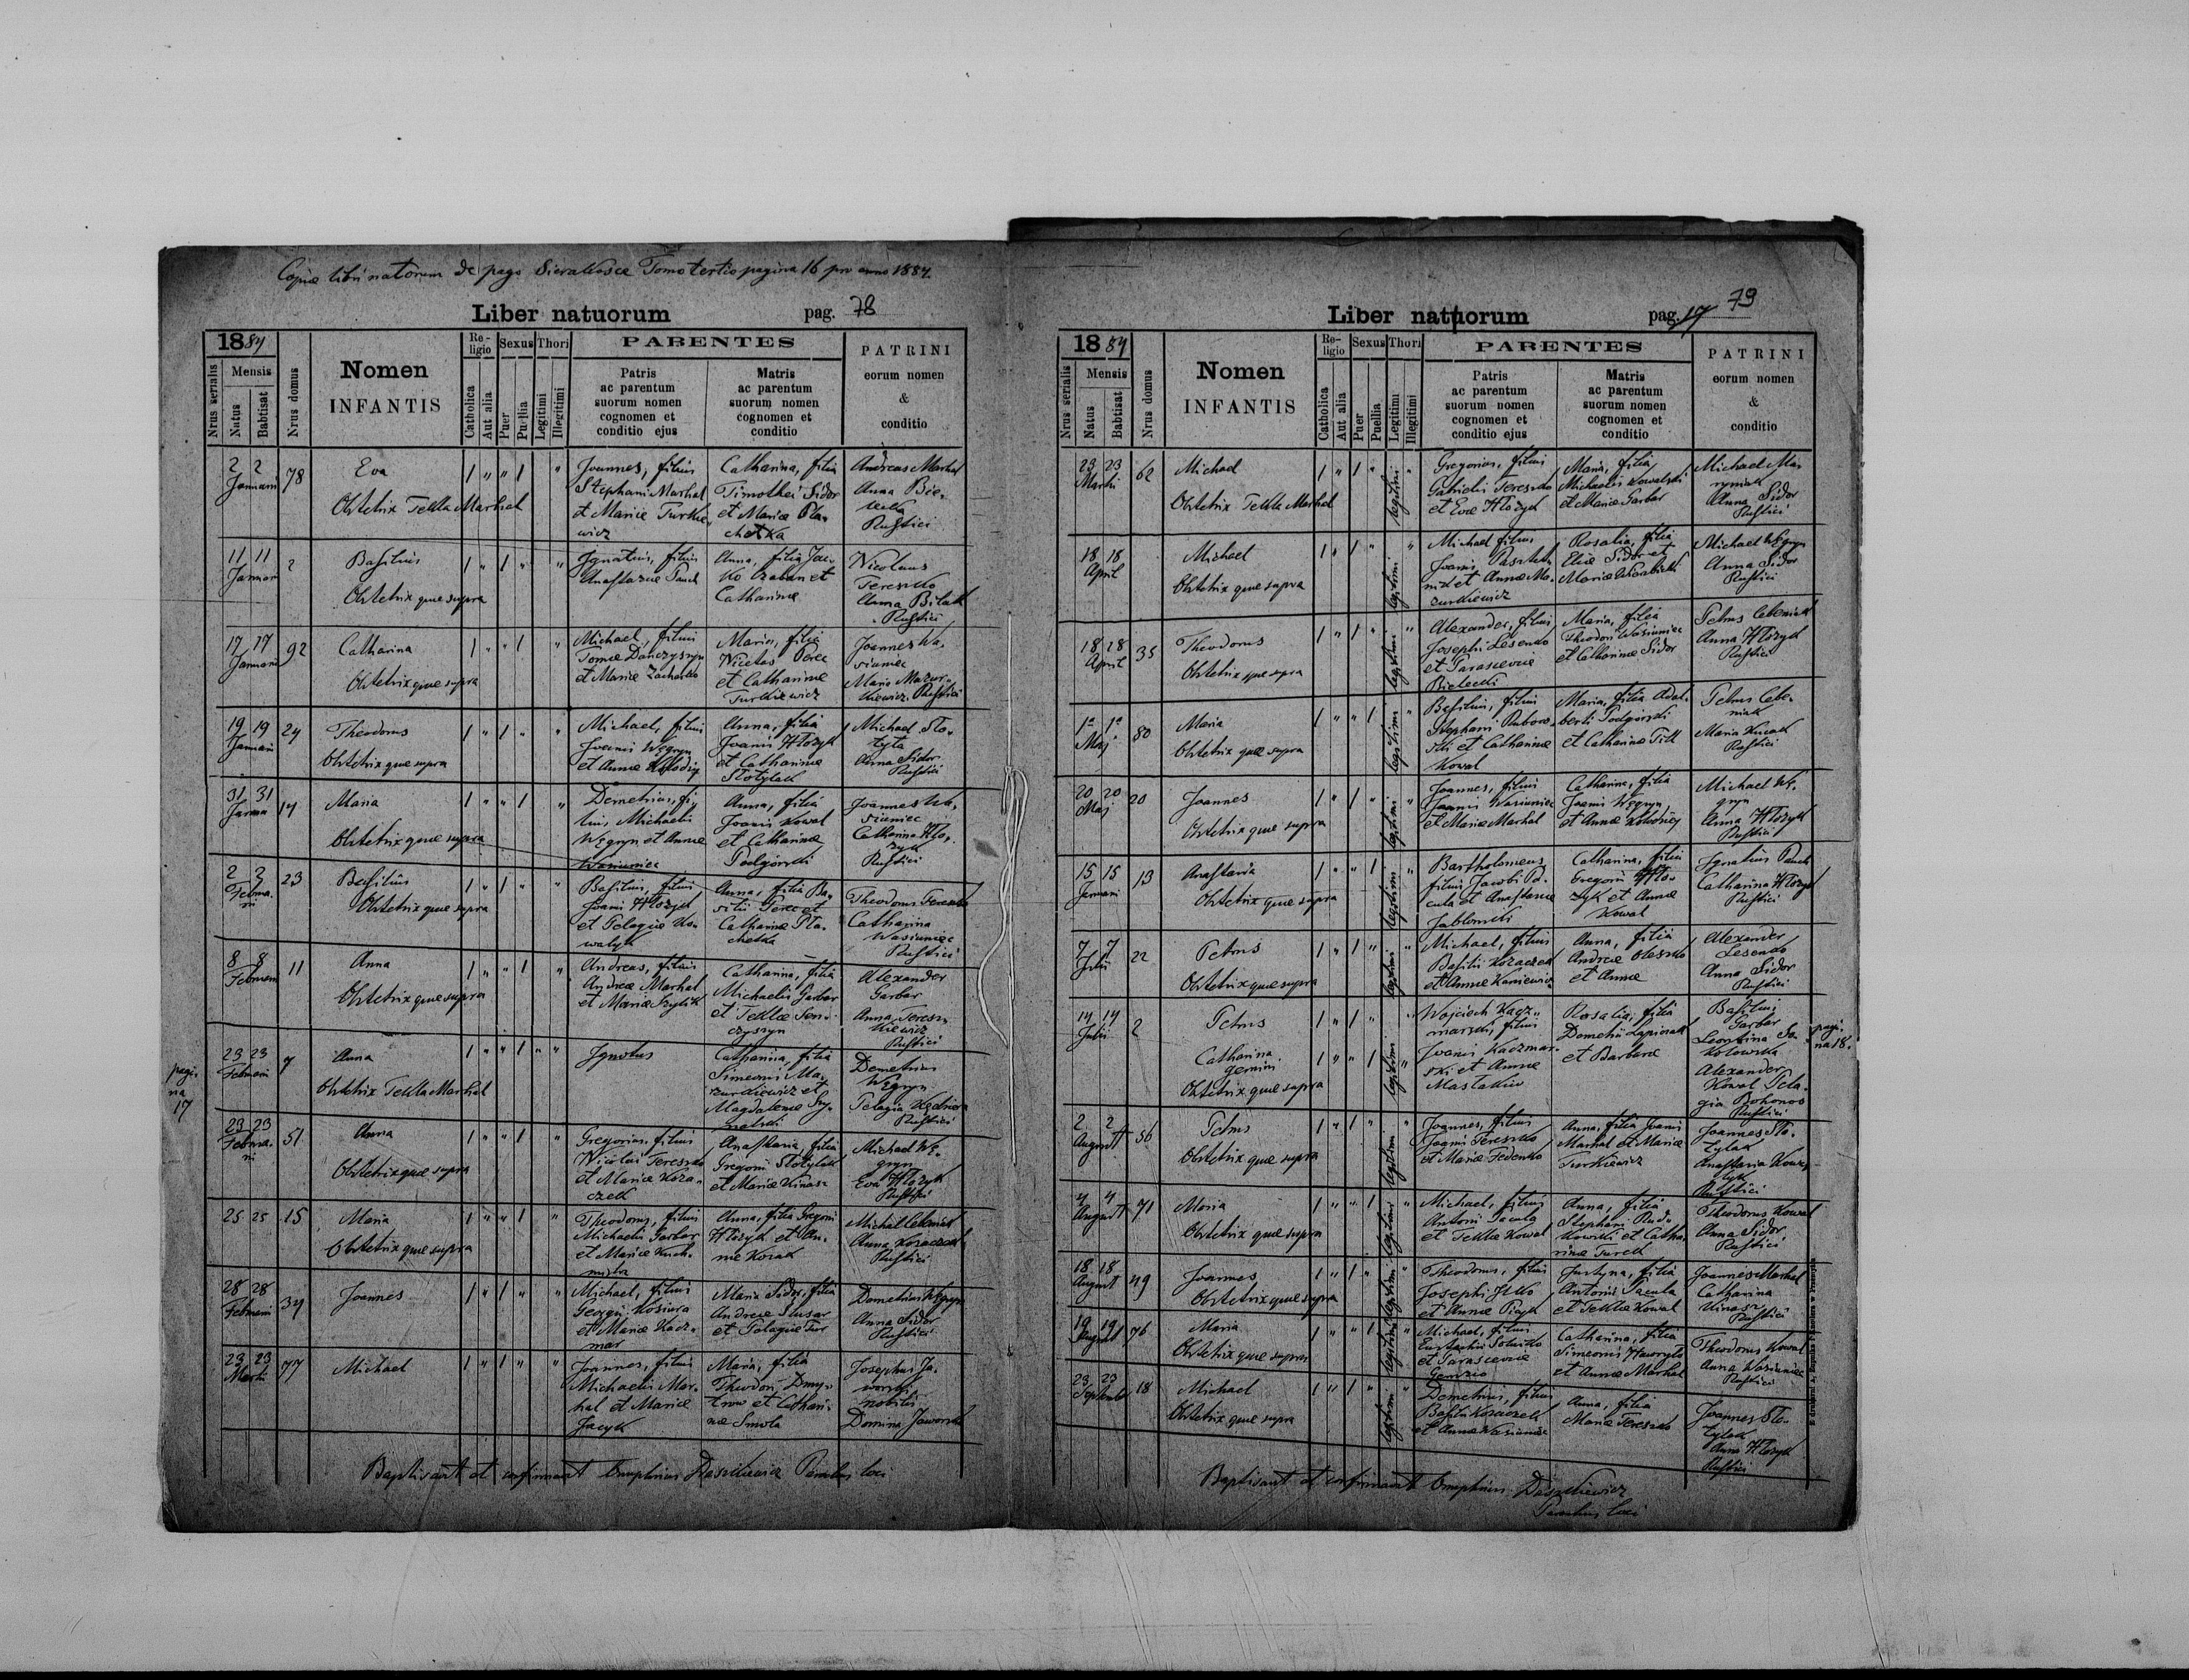 Copia libri natorum de pago Sieralkosce Tomo tertio pagina 16 pro anno 1884.
Liber natuorum pag. 78
1884
Nrus serialis
Mensis
Natus
Babtisat
Nrus domus
Nomen
INFANTIS
Re-
ligio
Catholica
Aut alia
Sexus
Puer
Puella
Thori
Legitimi
Illegitimi
PARENTES
Patris
ac parentum
suorum nomen
cognomen et
conditio ejus
Matris
ac parentum
suorum nomen
cognomen et
conditio
PATRINI
eorum nomen
&
conditio
2 2
Januarii
78
Eva
Obstetrix Tekla Marhal
Joannes, filius
Stephani Marhal
et Mariæ Turkie
wicz
Catharina, filia
Timothei Sidor
et Mariæ Pla-
chetka
Andreas Marhal
Anna Bie-
lecka
Rustici
11 11
Januar
2
Basilius
Obstetrix quæ supra
Ignatius, filius
Anastasiæ Panch
Anna, filia Jac-
ko Czaban et
Catharinæ
Nicolaus
Tereszko
Anna Bilak
Rustici
17 17
Januarii
92
Catharina
Obstetrix quæ supra
Michael, filius
Tomæ Danczyszyn
et Mariæ Zacharko
Maria, filia
Nicetas Perec
et Catharinæ
Turkiewicz
Joannes Wa-
siuniec
Maria Mazur-
kiewicz Rustici
19 19
Januarii
24
Theodorus
Obstetrix quæ supra
Michael, filius
Joannis Węgryn
et Annæ Kolodiy
Anna, filia
Joannis Hłożyk
et Catharinæ
Stotylak
Michael Sto-
tyla
Anna Sidor
Rustici
31 31
Janua
14
Maria
Obstetrix quæ supra
Demetrius, fi-
lius, Michaelis
Węgryn et Annæ
Wasiuniec
Anna, filia
Joannis Kowal
et Catharinæ
Podgórski
Joannes Wa-
siuniec
Catharina Hło-
zyk
Rustici
2 3
Februa-
rii
23
Basilius
Obstetrix quæ supra
Basilius, filius
Joannis Hłożyk
et Pelagiæ Ko-
walyk
Anna, filia Ba-
silii Perec et
Catharinæ Pla-
chetka
Theodorus Ferenc
Catharina
Wasiuniec
Rustici
8 8
Februarii
11
Anna
Obstetrix quæ supra
Andreas, filius
Andreæ Marhal
et Mariæ Szylik
Catharina, filia
Michaelis Garbar
et Teklæ Sen-
czyszyn
Alexander
Garbar
Anna Teresz-
kiewicz
Rustici
pagi-
na
17
23 23
Februarii
7
Anna
Obstetrix Tekla Marhal
Ignotus
Catharina, filia
Simeonis Ma-
zurkiewicz et
Magdalenæ Sy-
Demetrius
Węgryn
Pelagia Kędziora
Rustici
23 23
Februa-
rii
51
Anna
Obstetrix quæ supra
Gregorius, filius
Nicolai Tereszko
et Mariæ Koza-
czek
Anastasia, filia
Gregorii Stotylak
et Mariæ Kinasz
Michael Wę-
gryn
Eva Hłożyk
Rustici
25 25
15
Maria
Obstetrix quæ supra
Theodorus, filius
Michaelis Garbar
et Mariæ Kuch-
mistr
Anna, filia Gregorii
Hłożyk et An-
næ Kozak
Michal Cebeniak
Anna Kozaczek
Rustici
28 28
Februarii
34
Joannes
Michael, filius
Georgii Kosiura
et Mariæ Kacz-
mar
Maria Sidor, filia
Andreæ Slusar
et Pelagiæ Tur
Demetrius Węgryn
Anna Sidor
Rustici
23 23
Martii
77
Michael
Joannes, filius
Michaelis Mar-
hal et Mariæ
Jacyk
Maria, filia
Theodori Dmy-
trow et Cathari-
næ Smola
Josephus Ja-
worski
nobilis
Domina Jaworska
Baptisavit et confirmavit Onuphrius Daszkiewicz Parochus loci
Liber natuorum pag. 17 79
1884
Nrus serialis
Mensis
Natus
Babtisat
Nrus domus
Nomen
INFANTIS
Re-
ligio
Catholica
Aut alia
Sexus
Puer
Puella
Thori
Legitimi
Illegitimi
PARENTES
Patris
ac parentum
suorum nomen
cognomen et
conditio ejus
Matris
ac parentum
suorum nomen
cognomen et
conditio
PATRINI
eorum nomen
&
conditio
23 23
Martii
62
Michael
Obstetrix Tekla Marhal
legitimi
Gregorius, filius
Gabrielis Tereszko
et Evæ Hłożyk
Maria, filia
Michaelis Kowalski
et Mariæ Garbar
Michael Ma-
ryniak
Anna Sidor
Rustici
18 18
April
Michael
Obstetrix quæ supra
legitimi
Michael filius
Joannis Paszkch-
nik et Annæ Ma-
zurkiewicz
Rosalia, filia
Eliæ Sidor et
Mariæ
Michael Węgryn
Anna Sidor
Rustici
18 18
April
35
Theodorus
Obstetrix quæ supra
legitimi
Alexander, filius
Josephi Lesenko
et Parasceviæ
Bielecki
Maria, filia
Theodori Wasiuniec
et Catharinæ Sidor
Petrus Cebeniak
Anna Hłożyk
Rustici
1a 1a
Maj
80
Maria
Obstetrix quæ supra
legitimi
Basilius, filius
Stephani Dubow-
ski et Catharinæ
Kowal
Maria, filia Adal-
berti Podgórski
et Catharinæ Till
Petrus Cebe-
niak
Maria Kucak
Rustici
20 20
Maj
20
Joannes
Obstetrix quæ supra
legitimi
Joannes, filius
Joannis Wasiuniec
et Mariæ Marhal
Catharina, filia
Joannis Węgryn
et Annæ Kolodziej
Michael Wę-
gryn
Anna Hłożyk
Rustici
15 15
Januarii
13
Anastasia
Obstetrix quæ supra
legitimi
Bartholomeus
filius Jacobi Pa-
cula et Anastasiæ
Jablonski
Catharina, filia
Gregorii Hło-
zyk et Annæ
Kowal
Ignatius Panch
Catharina Hłożyk
Rustici
7 7
Julii
22
Petrus
Obstetrix quæ supra
legitimi
Michael, filius
Basilii Kozaczek
et Annæ Kaniewicz
Anna, filia
Andreæ Oleszko
et Annæ
Alexander
Lesenko
Anna Sidor
Rustici
14 14
Julii
2
Petrus
Catharina
gemini
Obstetrix quæ supra
legitimi
Wojciech Kacz-
marski, filius
Joannis Kaczmar-
ski et Annæ
Mastakiw
Rosalia, filia
Demetrii Lapionak
et Barbaræ
Basilius
Garbar
Leontina Sa-
kotowska
Alexander
Kowal Pela-
gia Bohonos
Rustici
pagi-
na 18.
2 2
Augusti
56
Petrus
Obstetrix quæ supra
legitimi
Joannes, filius
Joannis Tereszko
et Mariæ Fedenko
Anna, filia Joannis
Marhal et Mariæ
Turkiewicz
Joannes Sto-
tylak
Anastasia Kowa-
lyk
Rustici
4 4
Augusti
71
Maria
Obstetrix quæ supra
legitimi
Michael, filius
Antoni Pacula
et Teklæ Kowal
Anna, filia
Stephani Rud-
kowski et Catha-
rinæ Turek
Theodorus Kowal
Anna Sidor
Rustici
18 18
Augusti
49
Joannes
Obstetrix quæ supra
legitimi
Theodorus, filius
Josephi Ilko
et Annæ Piayk
Justyna, filia
Antonii Pacula
et Teklæ Kowal
Joannes Marhal
Catharina
Kinasz
Rustici
19 19
Augusti
76
Maria
Obstetrix quæ supra
legitimi
Michael, filius
Eustachii Sotnicko
et Parasceviæ
Catharina, filia
Simeonis Hawrylo
et Annæ Marhal
Theodorus Kowal
Anna Wasiuniec
Rustici
23 23
Septembr
18
Michael
Obstetrix quæ supra
legitimi
Demetrius, filius
Basilii Kozaczek
et Annæ Wasiuniec
Anna, filia
Mariæ Tereszko
Joannes Sto-
tylak
Anna Hłożyk
Rustici
Baptisavit et confirmavit Onuphrius Daszkiewicz
Parochus loci